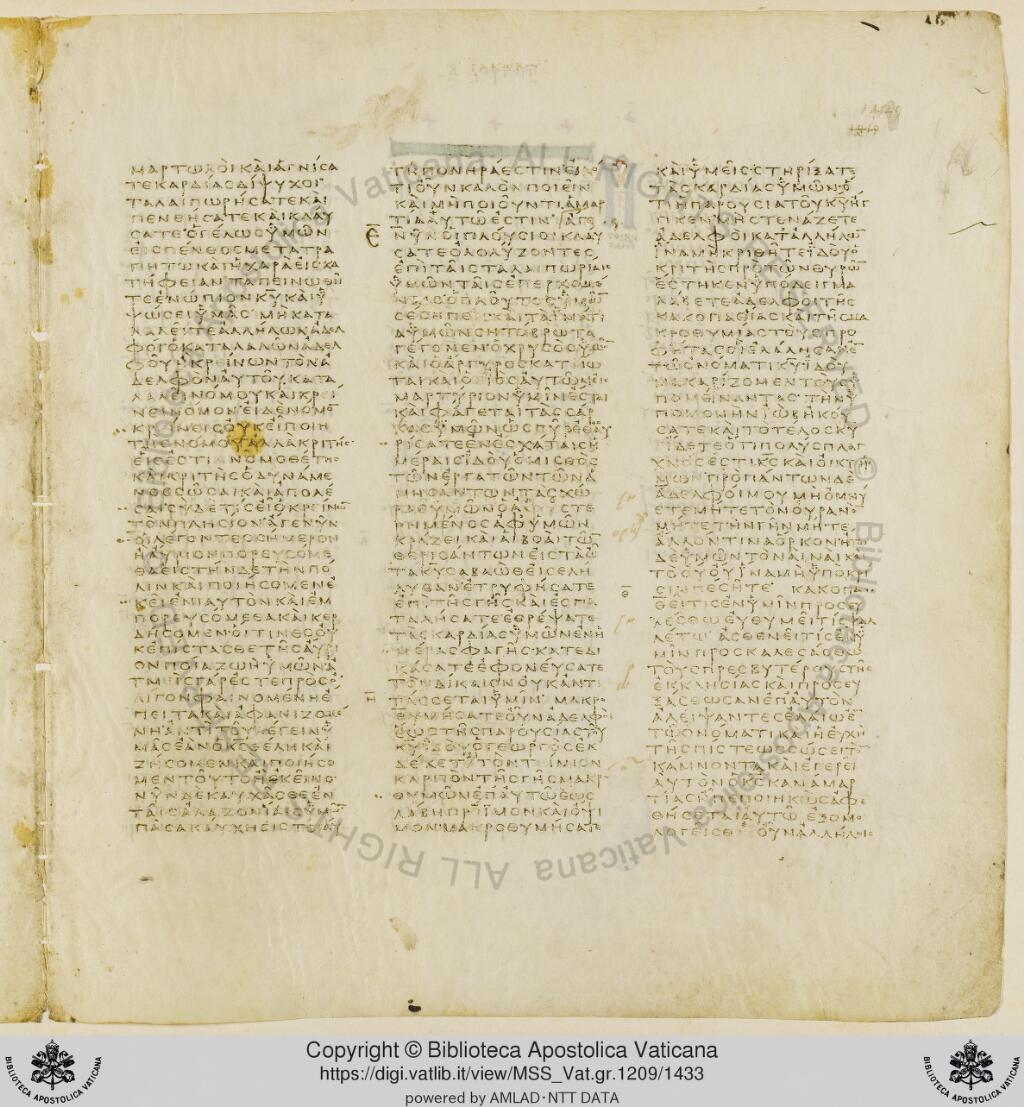 ΜΑΡΤΩΛΟΙΚΑΙΑΓΝΙCΑ
ΤΕΚΑΡΔΙΑCΔΙΨΥΧΟΙ
ΤΑΛΑΙΠΩΡΗCΑΤΕΚΑΙ
ΠΕΝΘΗCΑΤΕΚΑΙΚΛΑΥ
CΑΤΕΟΓΕΛΩCΥΜΩΝ
ΕΙCΠΕΝΘΟCΜΕΤΑΤΡΑ
ΠΗΤΩΚΑΙΗΧΑΡΑΕΙCΚΑ
ΤΗΦΕΙΑΝΤΑΠΕΙΝΩΘΗ
ΤΕΕΝΩΠΙΟΝΚΥΚΑΙΥ
ΨΩCΕΙΥΜΑCΜΗΚΑΤΑ
ΛΑΛΕΙΤΕΑΛΛΗΛΩΝΑΔΕΛ
ΦΟΙΟΚΑΤΑΛΑΛΩΝΑΔΕΛ
ΦΟΥΗΚΡΕΙΝΩΝΤΟΝΑ
ΔΕΛΦΟΝΑΥΤΟΥΚΑΤΑ
ΛΑΛΕΙΝΟΜΟΥΚΑΙΚΡΙ
ΝΕΙΝΟΜΟΝΕΙΔΕΝΟΜΟ
ΚΡΙΝΕΙCΟΥΚΕΙΠΟΙΗ
ΤΗCΝΟΜΟΥΑΛΛΑΚΡΙΤΗC
ΕΙCΕCΤΙΝΝΟΜΟΘΕΤΗC
ΚΑΙΚΡΙΤΗCΟΔΥΝΑΜΕ
ΝΟCCΩCΑΙΚΑΙΑΠΟΛΕ
CΑΙCΥΔΕΤΙCΕΙΟΚΡΙΝΩ
ΤΟΝΠΛΗCΙΟΝΑΓΕΝΥΝ
ΟΙΛΕΓΟΝΤΕCCΗΜΕΡΟΝ
ΗΑΥΡΙΟΝΠΟΡΕΥCΟΜΕ
ΘΑΕΙCΤΗΝΔΕΤΗΝΠΟ
ΛΙΝΚΑΙΠΟΙΗCΟΜΕΝΕ
ΚΕΙΕΝΙΑΥΤΟΝΚΑΙΕΜ
ΠΟΡΕΥCΟΜΕΘΑΚΑΙΚΕΡ
ΔΗCΟΜΕΝΟΙΤΙΝΕCΟΥ
ΚΕΠΙCΤΑCΘΕΤΗCΑΥΡΙ
ΟΝΠΟΙΑΖΩΗΥΜΩΝΑ
ΤΜΙCΓΑΡΕCΤΕΠΡΟCΟ
ΛΙΓΟΝΦΑΙΝΟΜΕΝΗΕ
ΠΕΙΤΑΚΑΙΑΦΑΝΙΖΟΜΕ
ΝΗΑΝΤΙΤΟΥΛΕΓΕΙΝΥ
ΜΑCΕΑΝΟΚCΘΕΛΗΚΑΙ
ΖΗCΟΜΕΝΚΑΙΠΟΙΗCΟ
ΜΕΝΤΟΥΤΟΗΕΚΕΙΝΟ
ΝΥΝΔΕΚΑΥΧΑCΘΕΕΝ
ΤΑΙCΑΛΑΖΟΝΙΑΙCΥΜΩ
ΠΑCΑΚΑΥΧΗCΙCΤΟΙΑΥ
ΤΗΠΟΝΗΡΑΕCΤΙΝΕΙΔΟ
ΤΙΟΥΝΚΑΛΟΝΠΟΙΕΙΝ
ΚΑΙΜΗΠΟΙΟΥΝΤΙΑΜΑΡ
ΤΙΑΑΥΤΩΕCΤΙΝΑΓΕ
ΝΥΝΟΙΠΛΟΥCΙΟΙΚΛΑΥ
CΑΤΕΟΛΟΛΥΖΟΝΤΕC
ΕΠΙΤΑΙCΤΑΛΑΙΠΩΡΙΑΙC
ΥΜΩΝΤΑΙCΕΠΕΡΧΟΜΕ
ΝΑΙCΟΠΛΟΥΤΟCΥΜΩ
CΕCΗΠΕΝΚΑΙΤΑΙΜΑΤΙ
ΑΥΜΩΝCΗΤΟΒΡΩΤΑ
ΓΕΓΟΝΕΝΟΧΡΥCΟCΥΜΩ
ΚΑΙΟΑΡΓΥΡΟCΚΑΤΙΩ
ΤΑΙΚΑΙΟΙΟCΑΥΤΩΝΕΙC
ΜΑΡΤΥΡΙΟΝΥΜΙΝΕCΤΑΙ
ΚΑΙΦΑΓΕΤΑΙΤΑCCΑΡ
ΚΑCΥΜΩΝΩCΠΥΡΕΘΗCΑΥ
ΡΙCΑΤΕΕΝΕCΧΑΤΑΙCΗ
ΜΕΡΑΙCΙΔΟΥΟΜΙCΘΟC
ΤΩΝΕΡΓΑΤΩΝΤΩΝΑ
ΜΗCΑΝΤΩΝΤΑCΧΩ
ΡΑCΥΜΩΝΟΑΦΥCΤΕ
ΡΗΜΕΝΟCΑΦΥΜΩΝ
ΚΡΑΖΕΙΚΑΙΑΙΒΟΑΙΤΩ
ΘΕΡΙCΑΝΤΩΝΕΙCΤΑΩ
ΤΑΚΥCΑΒΑΩΘΕΙCΕΛΗ
ΛΥΘΑΝΕΤΡΥΦΗCΑΤΕ
ΕΠΙΤΗCΓΗCΚΑΙΕCΠΑ
ΤΑΛΗCΑΤΕΕΘΡΕΨΑΤΕ
ΤΑCΚΑΡΔΙΑCΥΜΩΝΕΝΗ
ΜΕΡΑCΦΑΓΗCΚΑΤΕΔΙ
ΚΑCΑΤΕΕΦΟΝΕΥCΑΤΕ
ΤΟΝΔΙΚΑΙΟΝΟΥΚΑΝΤΙ
ΤΑCCΕΤΑΙΥΜΙΝΜΑΚΡΟ
ΘΥΜΗCΑΤΕΟΥΝΑΔΕΛΦΟΙ
ΕΩCΤΗCΠΑΡΟΥCΙΑCΤΟΥ
ΚΥΙΔΟΥΟΓΕΩΡΓΟCΕΚ
ΔΕΧΕΤΑΙΤΟΝΤΙΜΙΟΝ
ΚΑΡΠΟΝΤΗCΓΗCΜΑΚΡΟ
ΘΥΜΩΝΕΠΑΥΤΩΕΩC
ΛΑΒΗΠΡΟΙΜΟΝΚΑΙΟΨΙ
ΜΟΝΜΑΚΡΟΘΥΜΗCΑΤΕ
ΚΑΙΥΜΕΙCCΤΗΡΙΞΑΤΕ
ΤΑCΚΑΡΔΙΑCΥΜΩΝΟ
ΤΙΗΠΑΡΟΥCΙΑΤΟΥΚΥΗΓ
ΓΙΚΕΝΜΗCΤΕΝΑΖΕΤΕ
ΑΔΕΛΦΟΙΚΑΤΑΛΛΗΛΩ
ΙΝΑΜΗΚΡΙΘΗΤΕΙΔΟΥΟ
ΚΡΙΤΗCΠΡΟΤΩΝΘΥΡΩ
ΕCΤΗΚΕΝΥΠΟΔΕΙΓΜΑ
ΛΑΒΕΤΕΑΔΕΛΦΟΙΤΗC
ΚΑΚΟΠΑΘΙΑCΚΑΙΤΗCΜΑ
ΚΡΟΘΥΜΙΑCΤΟΥCΠΡΟ
ΦΗΤΑCΟΙΕΛΑΛΗCΑΝΕ
ΤΩΟΝΟΜΑΤΙΚΥΙΔΟΥ
ΜΑΚΑΡΙΖΟΜΕΝΤΟΥCΥ
ΠΟΜΕΙΝΑΝΤΑCΤΗΝΥ
ΠΟΜΟΝΗΝΙΩΒΗΚΟΥ
CΑΤΕΚΑΙΤΟΤΕΛΟCΚΥ
ΕΙΔΕΤΕΟΤΙΠΟΛΥCΠΛΑΓ
ΧΝΟCΕCΤΙΚCΚΑΙΟΙΚΤΙΡ
ΜΩΝΠΡΟΠΑΝΤΩΝΔΕ
ΑΔΕΛΦΟΙΜΟΥΜΗΟΜΝΥ
ΕΤΕΜΗΤΕΤΟΝΟΥΡΑΝΟ
ΜΗΤΕΤΗΝΓΗΝΜΗΤΕ
ΑΛΛΟΝΤΙΝΑΟΡΚΟΝΗΤΩ
ΔΕΥΜΩΝΤΟΝΑΙΝΑΙΚΑΙ
ΤΟΟΥΟΥΙΝΑΜΗΥΠΟΚΡΙ
CΙΝΠΕCΗΤΕΚΑΚΟΠΑ
ΘΕΙΤΙCΕΝΥΜΙΝΠΡΟCΕΥ
ΧΕCΘΩΕΥΘΥΜΕΙΤΙCΨΑΛ
ΛΕΤΩΑCΘΕΝΕΙΤΙCΕΝΥ
ΜΙΝΠΡΟCΚΑΛΕCΑCΘΩ
ΤΟΥCΠΡΕCΒΥΤΕΡΟΥCΤΗC
ΕΚΚΛΗCΙΑCΚΑΙΠΡΟCΕΥ
ΞΑCΘΩCΑΝΕΠΑΥΤΟΝ
ΑΛΕΙΨΑΝΤΕCΕΛΑΙΩΕ
ΤΩΟΝΟΜΑΤΙΚΑΙΗΕΥΧΗ
ΤΗCΠΙCΤΕΩCCΩCΕΙΤΟ
ΚΑΜΝΟΝΤΑΚΑΙΕΓΕΡΕΙ
ΑΥΤΟΝΟΚCΚΑΝΑΜΑΡ
ΤΙΑCΗΠΕΠΟΙΗΚΩCΑΦΕ
ΘΗCΕΤΑΙΑΥΤΩΕΞΟΜΟ
ΛΟΓΕΙCΘΕΟΥΝΑΛΛΗΛΟΙC
Copyright © Biblioteca Apostolica Vaticana
https://digi.vatlib.it/view/MSS_Vat.gr.1209/1433
powered by AMLAD·NTT DATA